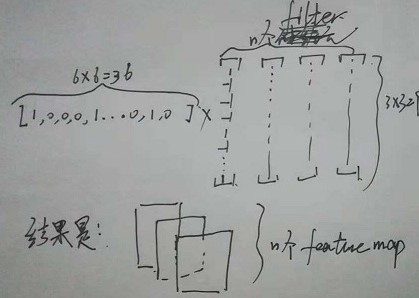 filter
n个
6×6=36
[1,0,0,0,1...0,1,0 ] ×
3×3=9
结果是:
n个 feature map